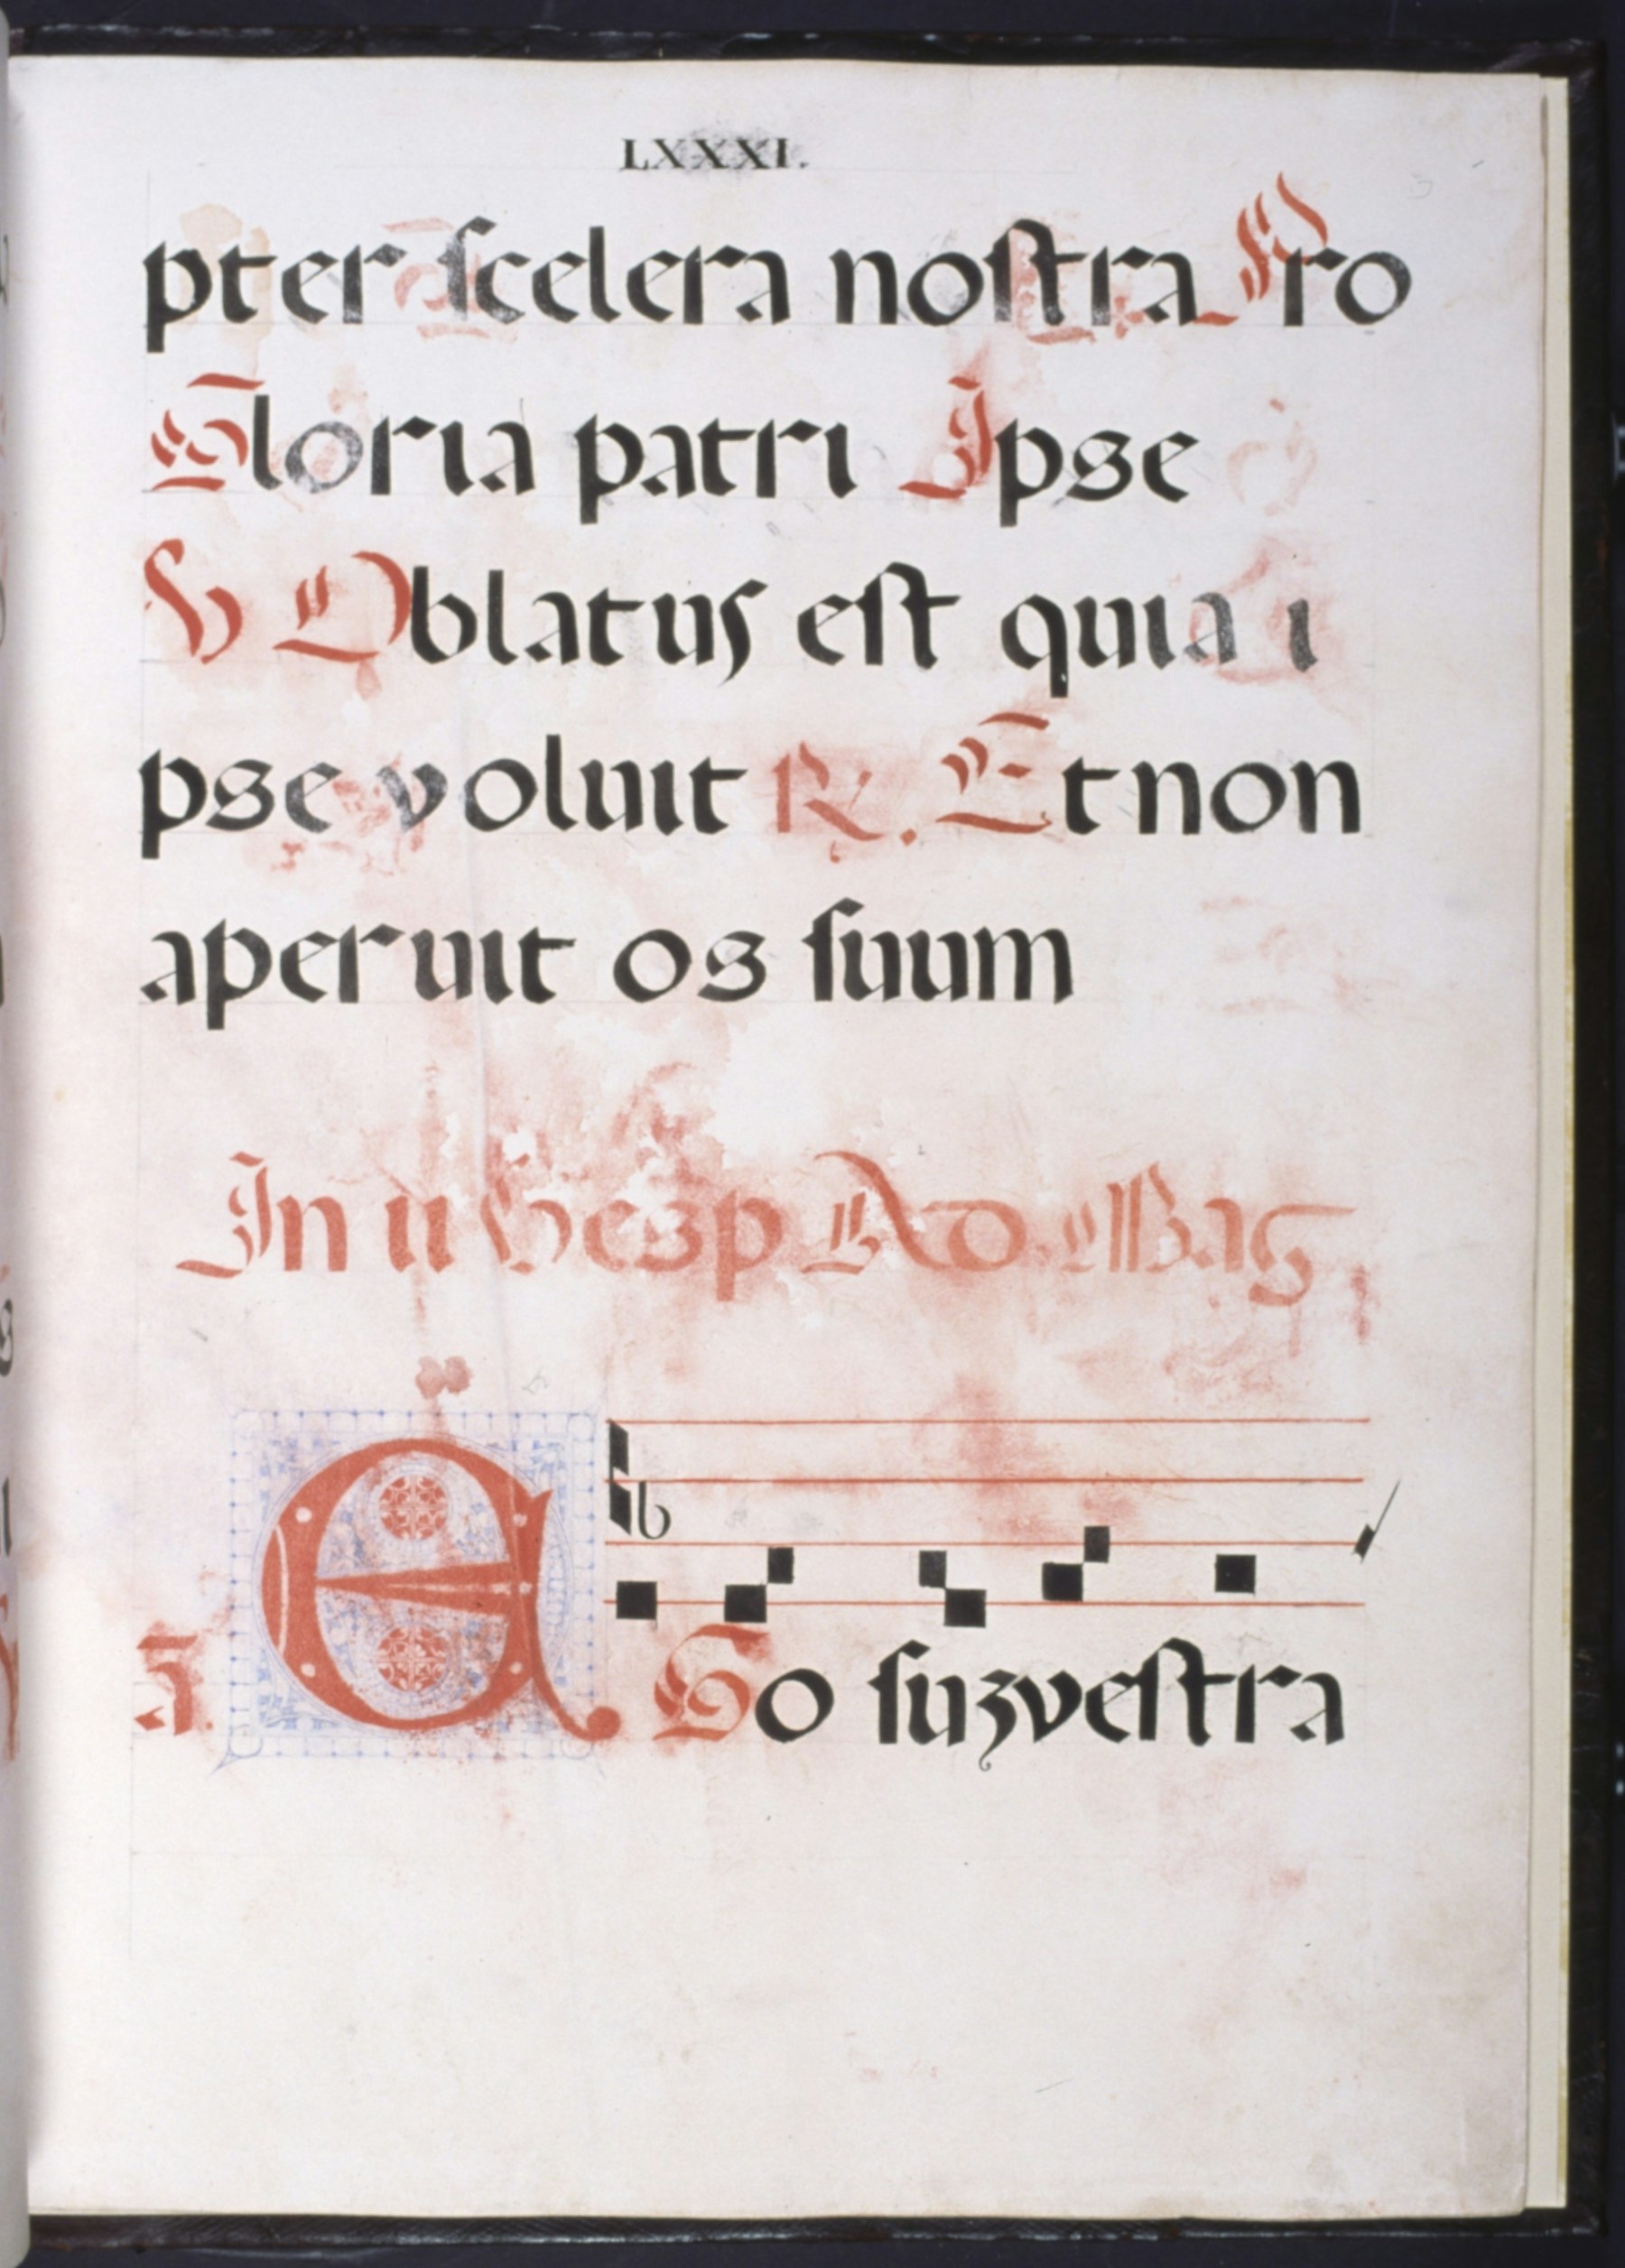 LXXXI.
pter scelera nostra Pro
Gloria patri Ipse
V Oblatus est quia i
pse voluit R. Et non
aperuit os suum
In ii Vesp Ad Mag
A. E Go suz vestra